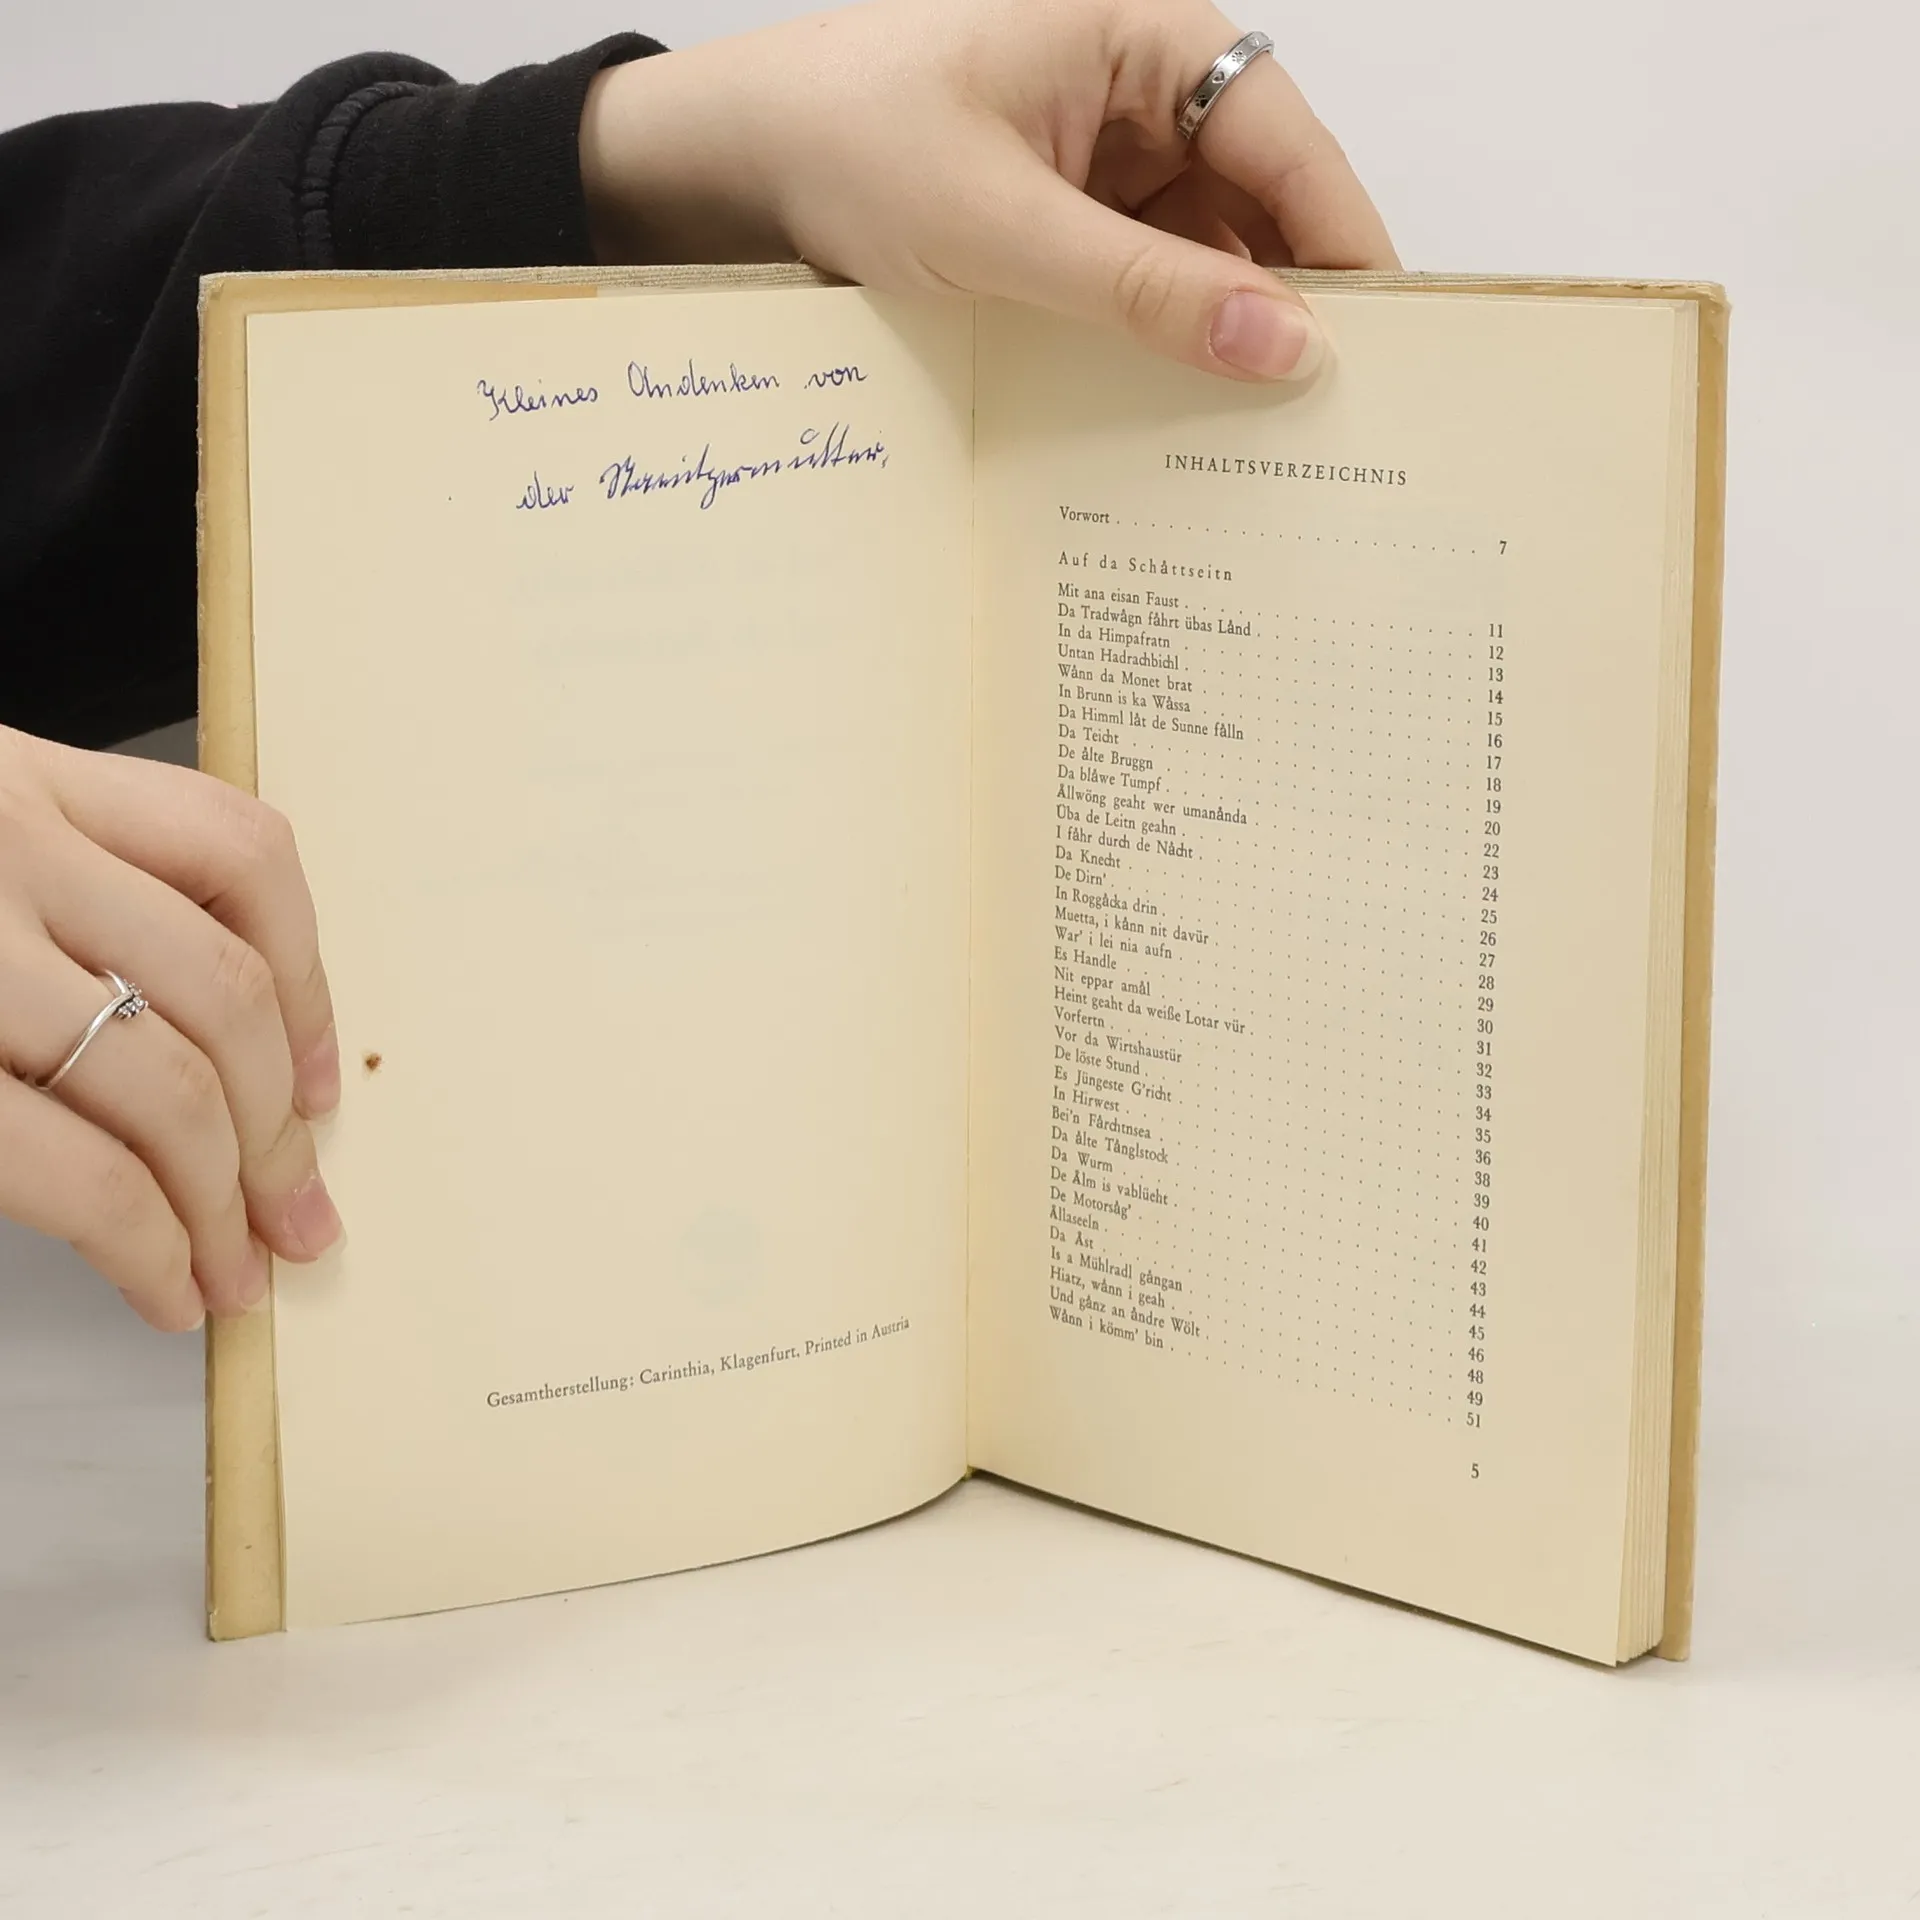 Kleines Andenken von
der
Gesamtherstellung: Carinthia, Klagenfurt. Printed in Austria
INHALTSVERZEICHNIS
Vorwort . . . . . . . . . . . . . . . . . . . 7
Auf da Schåttseitn
Mit ana eisan Faust . . . . . . . . . . . . . 11
Da Tradwågn fåhrt übas Lånd . . . . . . . . . . 12
In da Himpafratn . . . . . . . . . . . . . 13
Untan Hadrachbichl . . . . . . . . . . . . . 14
Wånn da Monet brat . . . . . . . . . . . . . 15
In Brunn is ka Wåssa . . . . . . . . . . . . . 16
Da Himml låt de Sunne fålln . . . . . . . . . . 17
Da Teicht . . . . . . . . . . . . . . . 18
De ålte Bruggn . . . . . . . . . . . . . . 19
Da blåwe Tumpf . . . . . . . . . . . . . . 20
Ållwöng geaht wer umanånda . . . . . . . . . . 22
Üba de Leitn geahn . . . . . . . . . . . . . 23
I fåhr durch de Nåcht . . . . . . . . . . . . 24
Da Knecht . . . . . . . . . . . . . . . 25
De Dirn' . . . . . . . . . . . . . . . 26
In Roggåcka drin . . . . . . . . . . . . . 27
Muetta, i kånn nit davür . . . . . . . . . . . 28
War' i lei nia aufn . . . . . . . . . . . . . 29
Es Handle . . . . . . . . . . . . . . . 30
Nit eppar amål . . . . . . . . . . . . . . 31
Heint geaht da weiße Lotar vür . . . . . . . . . 32
Vorfertn . . . . . . . . . . . . . . . 33
Vor da Wirtshaustür . . . . . . . . . . . . 34
De löste Stund . . . . . . . . . . . . . . 35
Es Jüngeste G'richt . . . . . . . . . . . . . 36
In Hirwest . . . . . . . . . . . . . . . 38
Bei'n Fårchtnsea . . . . . . . . . . . . . . 39
Da ålte Tånglstock . . . . . . . . . . . . . 40
Da Wurm . . . . . . . . . . . . . . . 41
De Ålm is vablüeht . . . . . . . . . . . . . 42
De Motorsåg' . . . . . . . . . . . . . . 43
Ållaseeln . . . . . . . . . . . . . . . 44
Da Åst . . . . . . . . . . . . . . . . 45
Is a Mühlradl gångan . . . . . . . . . . . . 46
Hiatz, wånn i geah . . . . . . . . . . . . . 48
Und gånz an åndre Wölt . . . . . . . . . . . . 49
Wånn i kömm' bin . . . . . . . . . . . . . 51
5